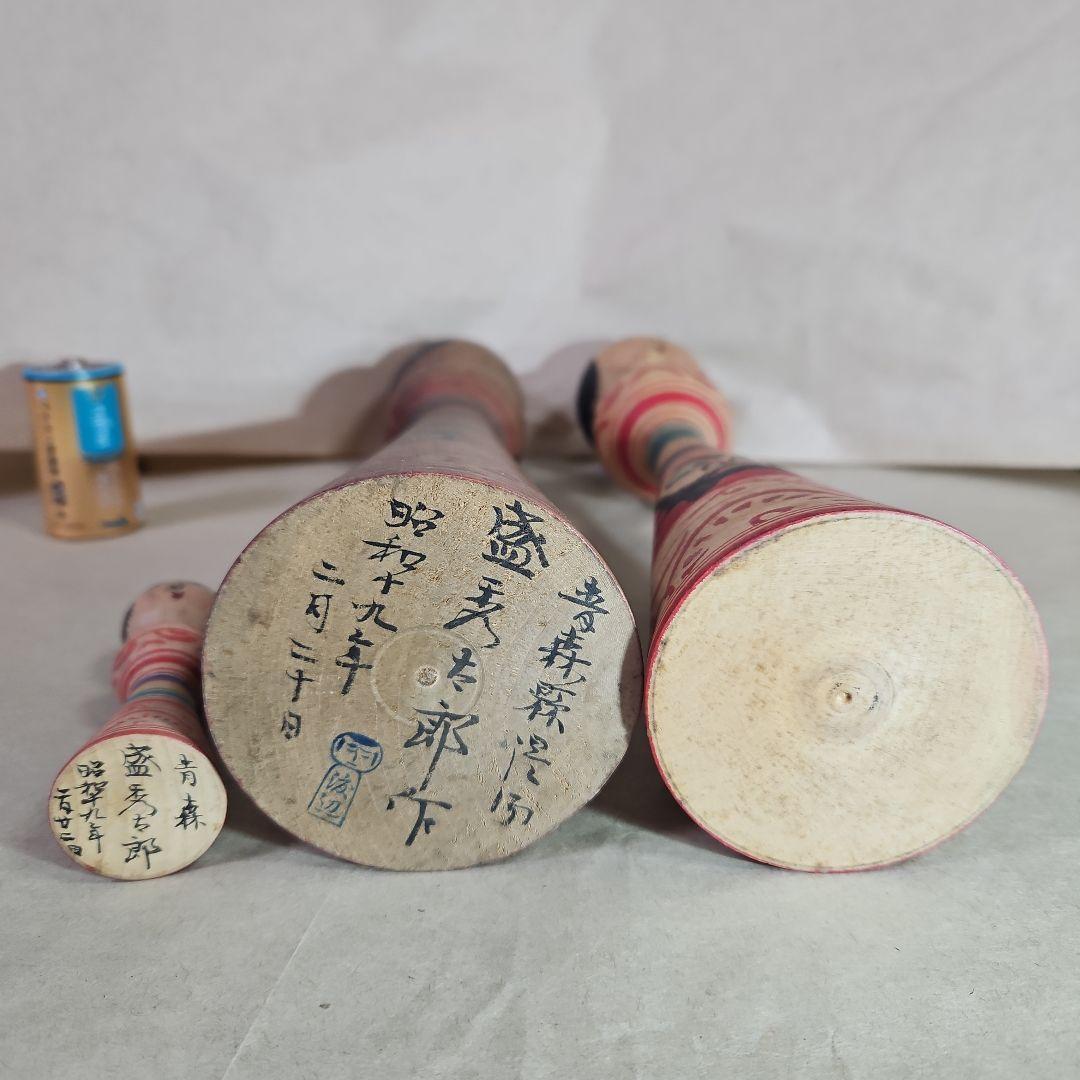 青森縣温湯
盛秀太郎作
昭和十九年
二月二十日
渡辺
青森
盛秀太郎
昭和十九年
二月廿二日